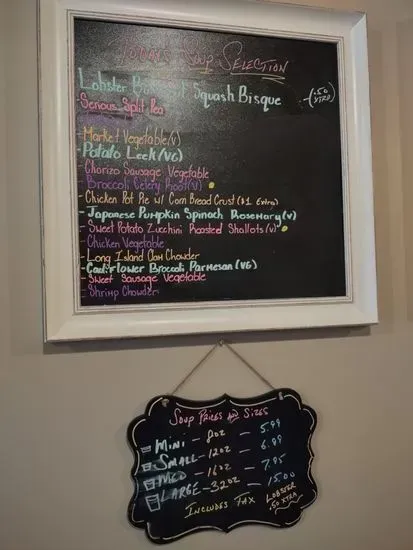 Todays Soup Selection
Lobster Butternut Squash Bisque -(.50 xtra)
- Serious Split Pea
- Market Vegetable (V)
- Potato Leek (VG)
- Chorizo Sausage Vegetable
- Broccoli Celery Root (V)
- Chicken Pot Pie w/ Corn Bread Crust ($1 Extra)
- Japanese Pumpkin Spinach Rosemary (V)
- Sweet Potato Zucchini Roasted Shallots (V)
- Chicken Vegetable
- Long Island Clam Chowder
- Cauliflower Broccoli Parmesan (VG)
- Sweet Sausage Vegetable
- Shrimp Chowder
Soup Prices and Sizes
Mini - 8oz - 5.99
Small - 12oz - 6.99
Med - 16oz - 7.95
Large - 32oz - 15.00
Includes Tax
Lobster
.50 xtra